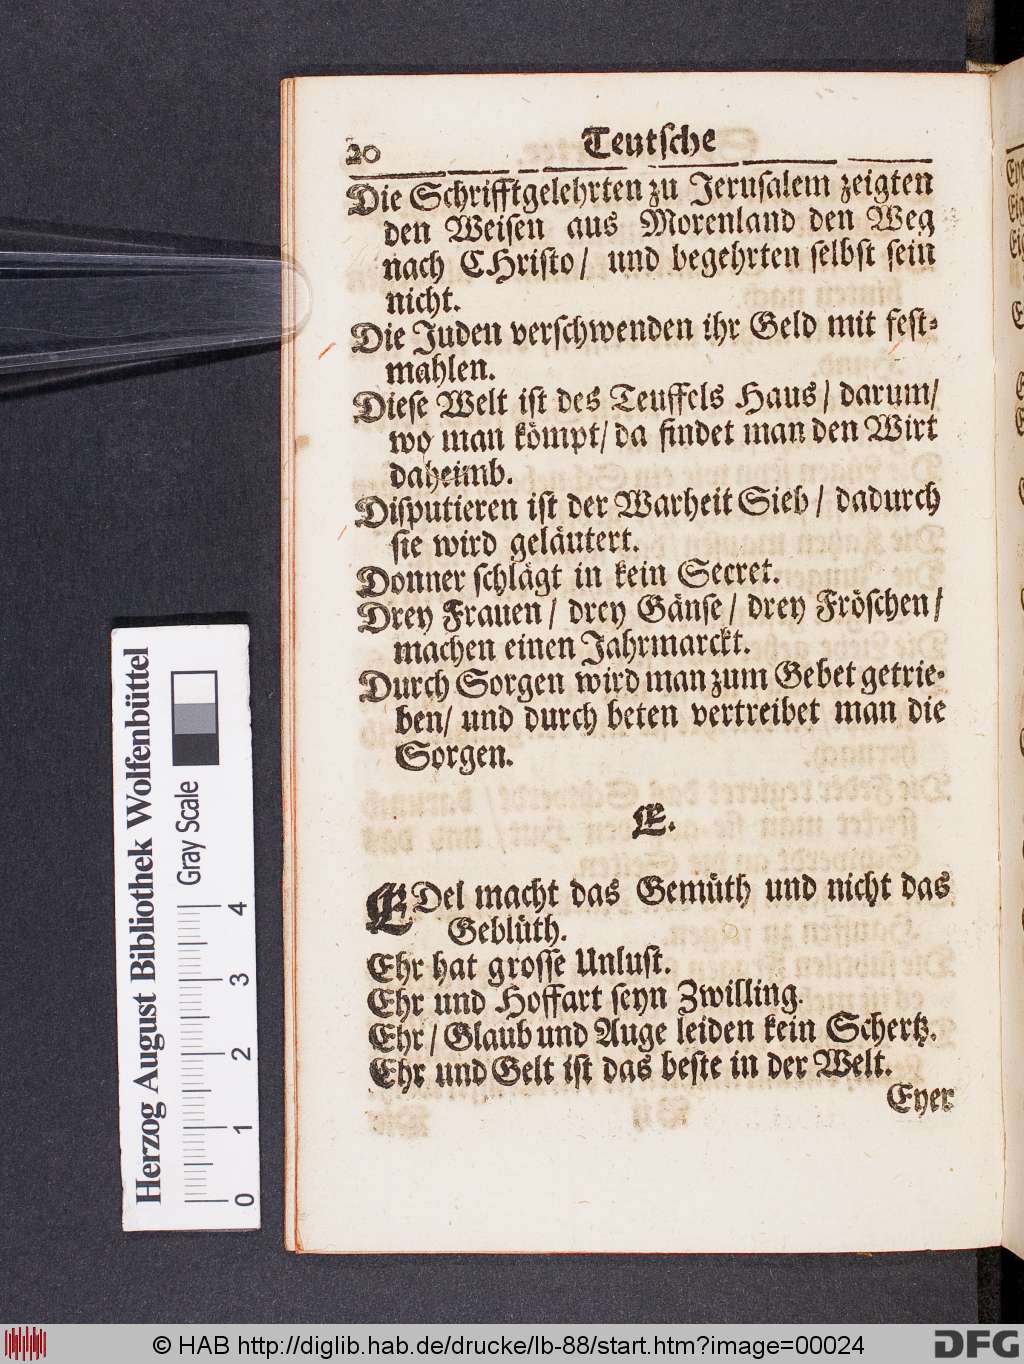 20 Teutsche
Die Schrifftgelehrten zu Jerusalem zeigten
den Weisen aus Morenland den Weg
nach CHristo/ und begehrten selbst sein
nicht.
Die Juden verschwenden ihr Geld mit fest-
mahlen.
Diese Welt ist des Teuffels Haus/ darum/
wo man kömpt/ da findet man den Wirt
daheimb.
Disputieren ist der Warheit Sieb/ dadurch
sie wird geläutert.
Donner schlägt in kein Secret.
Drey Frauen/ drey Gänse/ drey Fröschen/
machen einen Jahrmarckt.
Durch Sorgen wird man zum Gebet getrie-
ben/ und durch beten vertreibet man die
Sorgen.
E.
EDel macht das Gemüth und nicht das
Geblüth.
Ehr hat grosse Unlust.
Ehr und Hoffart seyn Zwilling.
Ehr/ Glaub und Auge leiden kein Schertz.
Ehr und Gelt ist das beste in der Welt.
Eyer
Herzog August Bibliothek Wolfenbüttel
Gray Scale
0 1 2 3 4
© HAB http://diglib.hab.de/drucke/lb-88/start.htm?image=00024
DFG